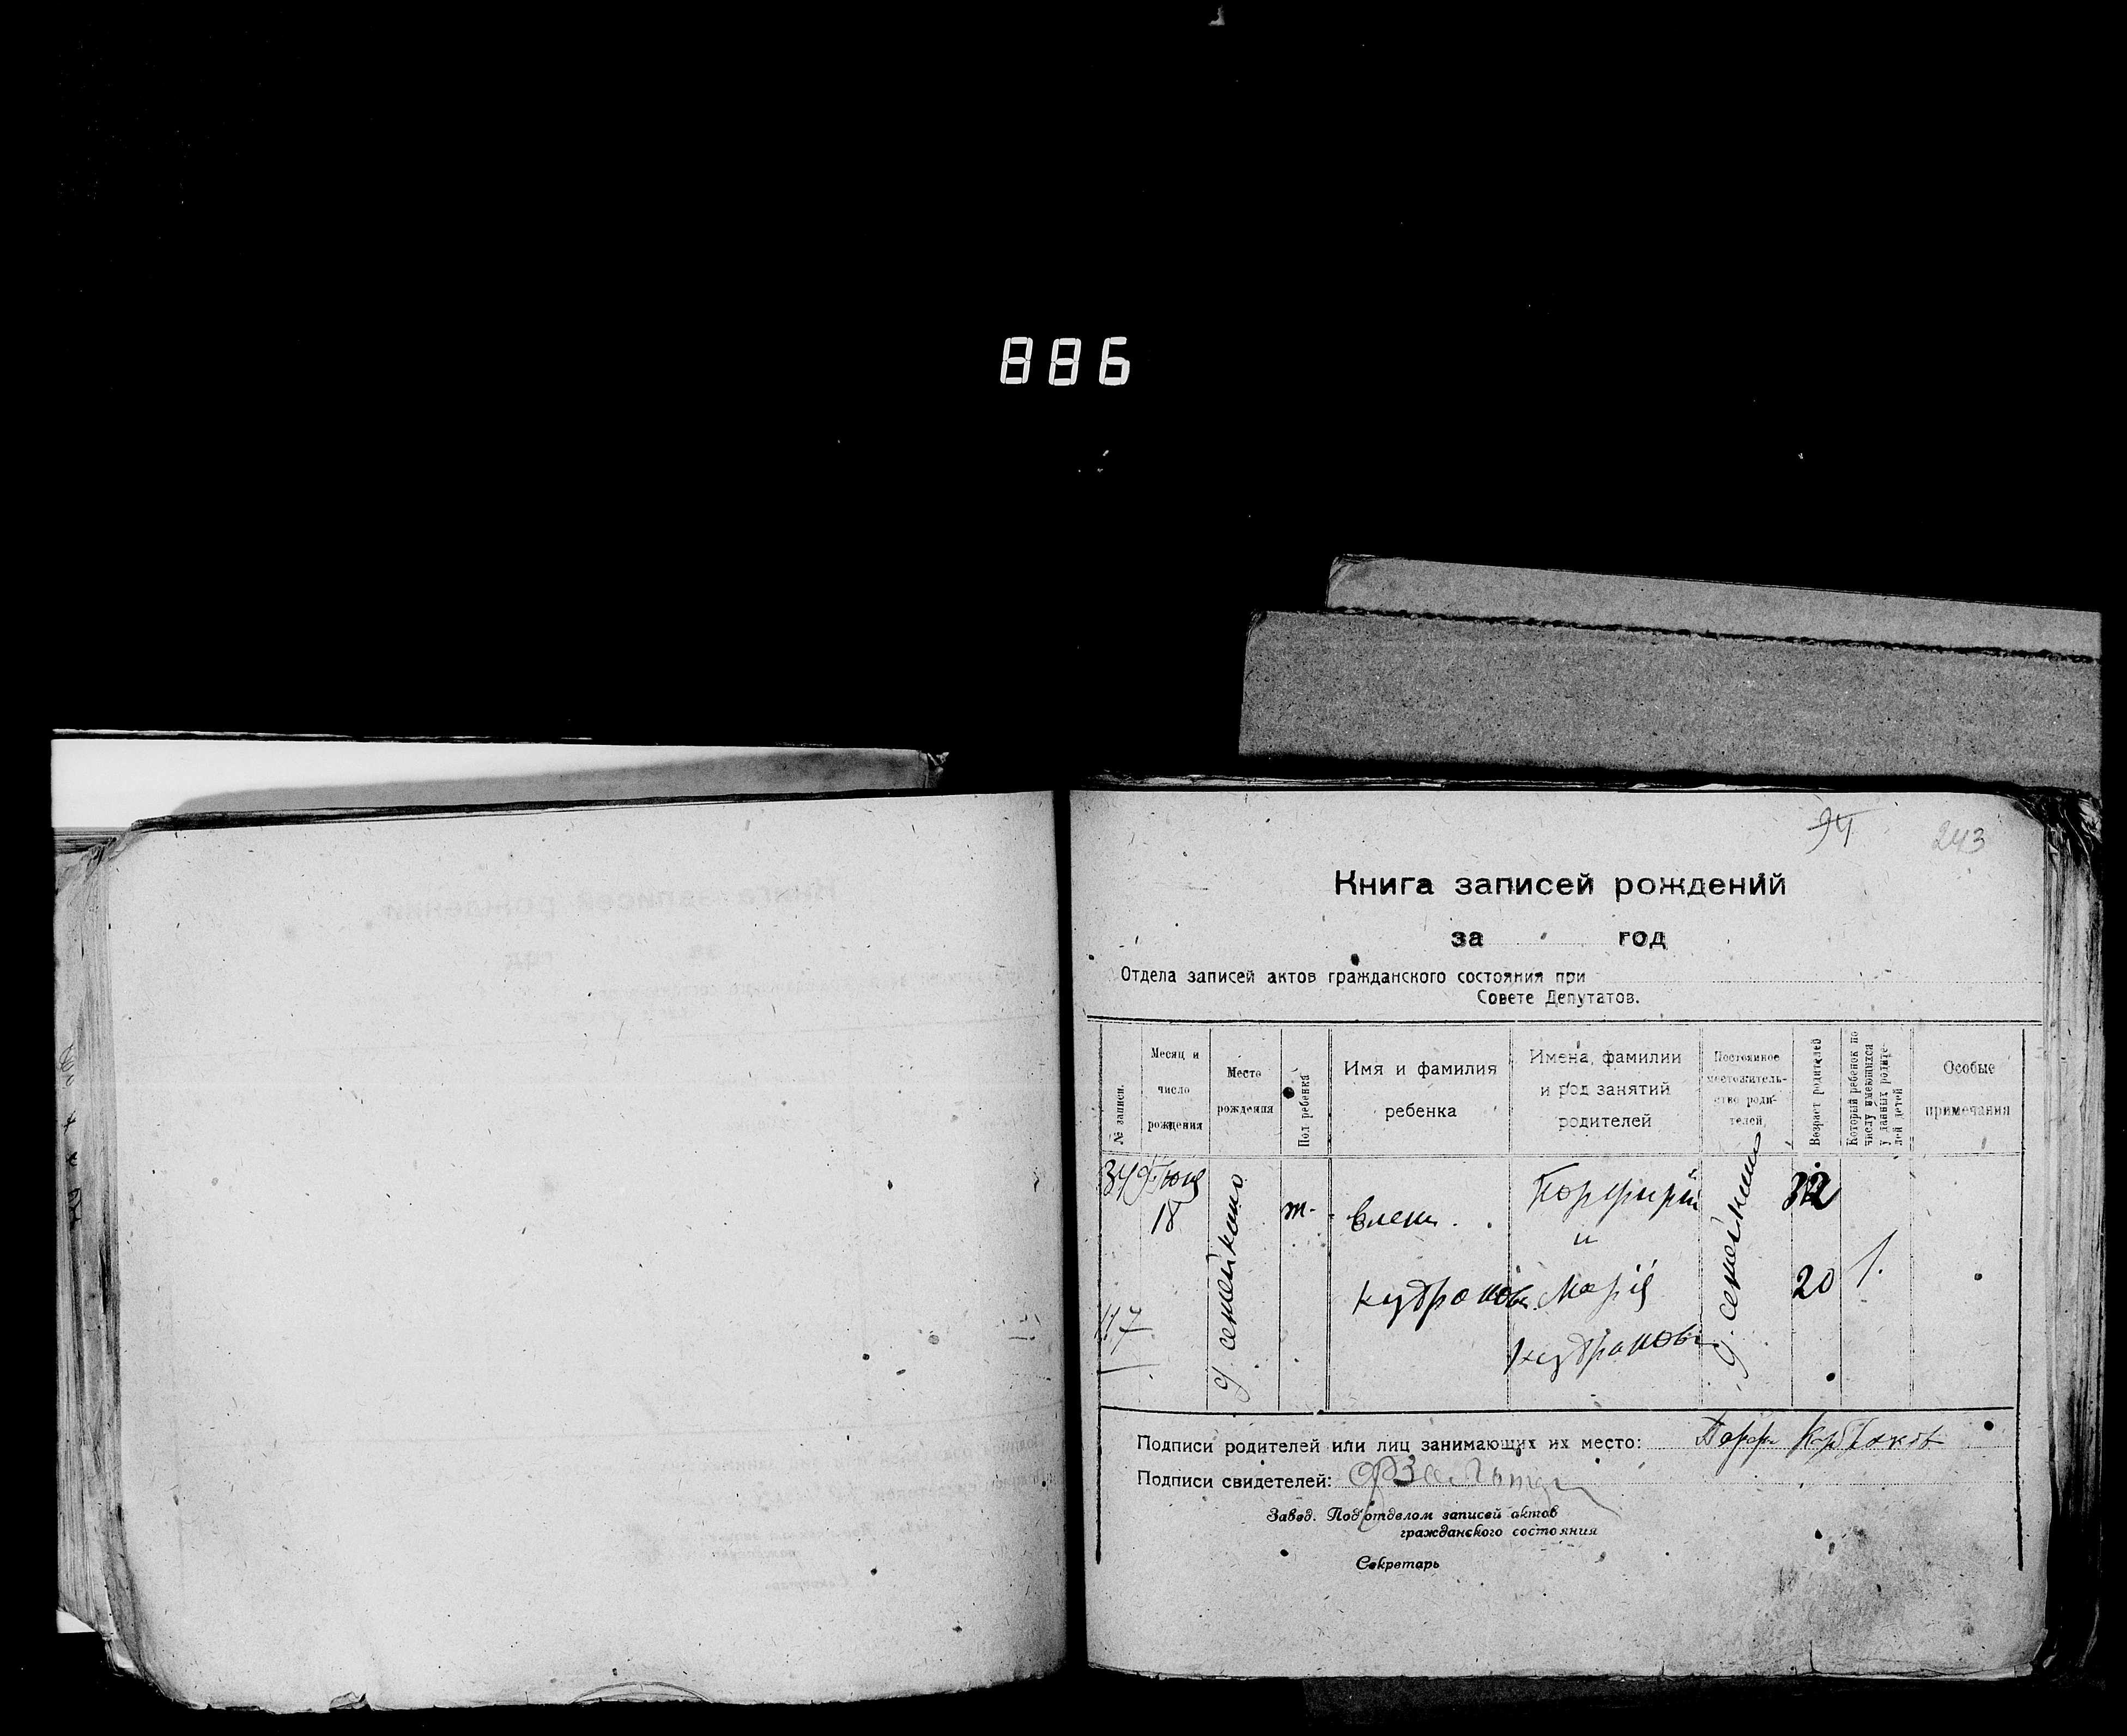 886
94
243
Книга записей рождений
за год
Отдела записей актов гражданского состояния при
Совете Депутатов.
№ записи.
Месяц и число рождения
Место рождения
Пол ребенка
Имя и фамилия ребенка
Имена, фамилии и род занятий родителей
Постоянное местожительство родителей
Возраст родителей
Который ребенок по числу имеющихся у данных родителей детей
Особые примечания
349
18
117
м.
Порфирий
и
Марія
32
20
1.
Подписи родителей или лиц занимающих их место:
Подписи свидетелей:
Завед. Подотделом записей актов
гражданского состояния
Секретарь